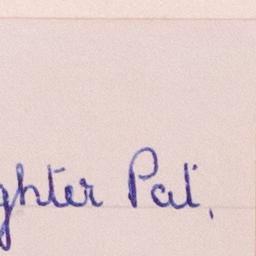 ghter Pat,